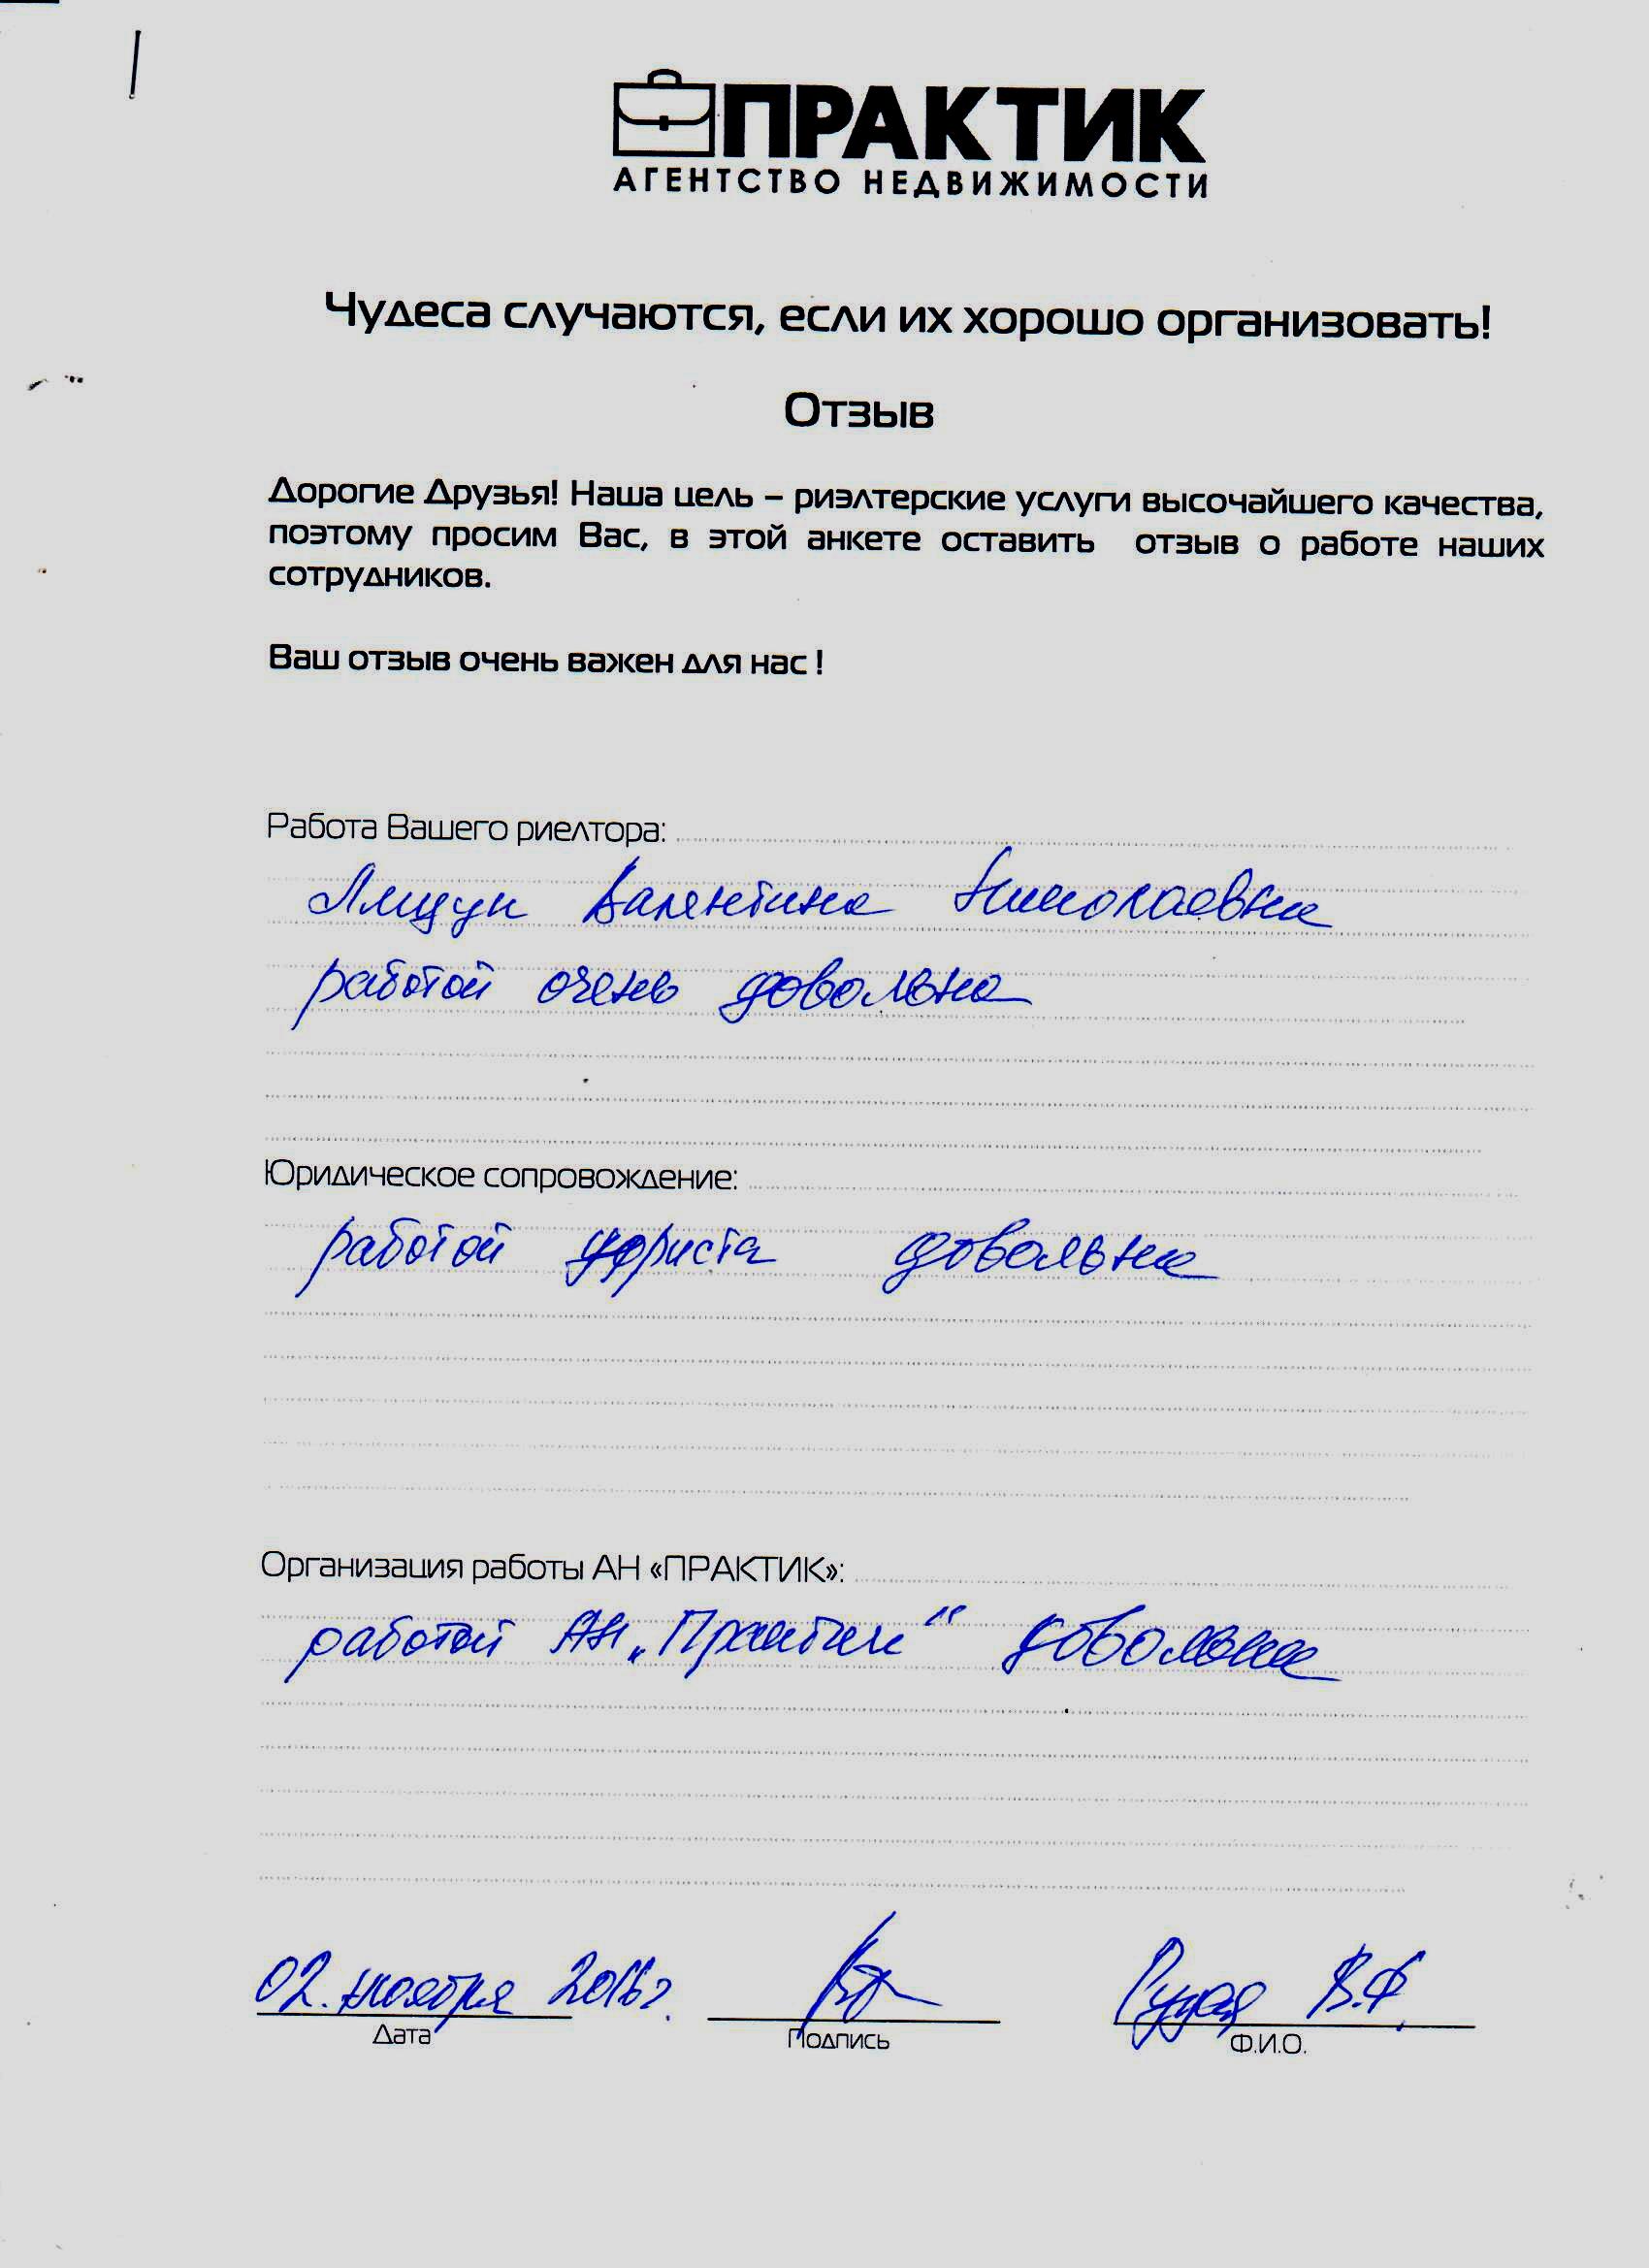 ПРАКТИК
АГЕНТСТВО НЕДВИЖИМОСТИ
Чудеса случаются, если их хорошо организовать!
Отзыв
Дорогие Друзья! Наша цель – риэлтерские услуги высочайшего качества,
поэтому просим Вас, в этой анкете оставить отзыв о работе наших
сотрудников.
Ваш отзыв очень важен для нас !
Работа Вашего риелтора:
Валентина Николаевна
работой очень довольна
Юридическое сопровождение:
работой юриста довольна
Организация работы АН «ПРАКТИК»:
работой АН „Практик“ довольна
02. ноября 2016г.
В.Ф.
Дата
Подпись
Ф.И.О.